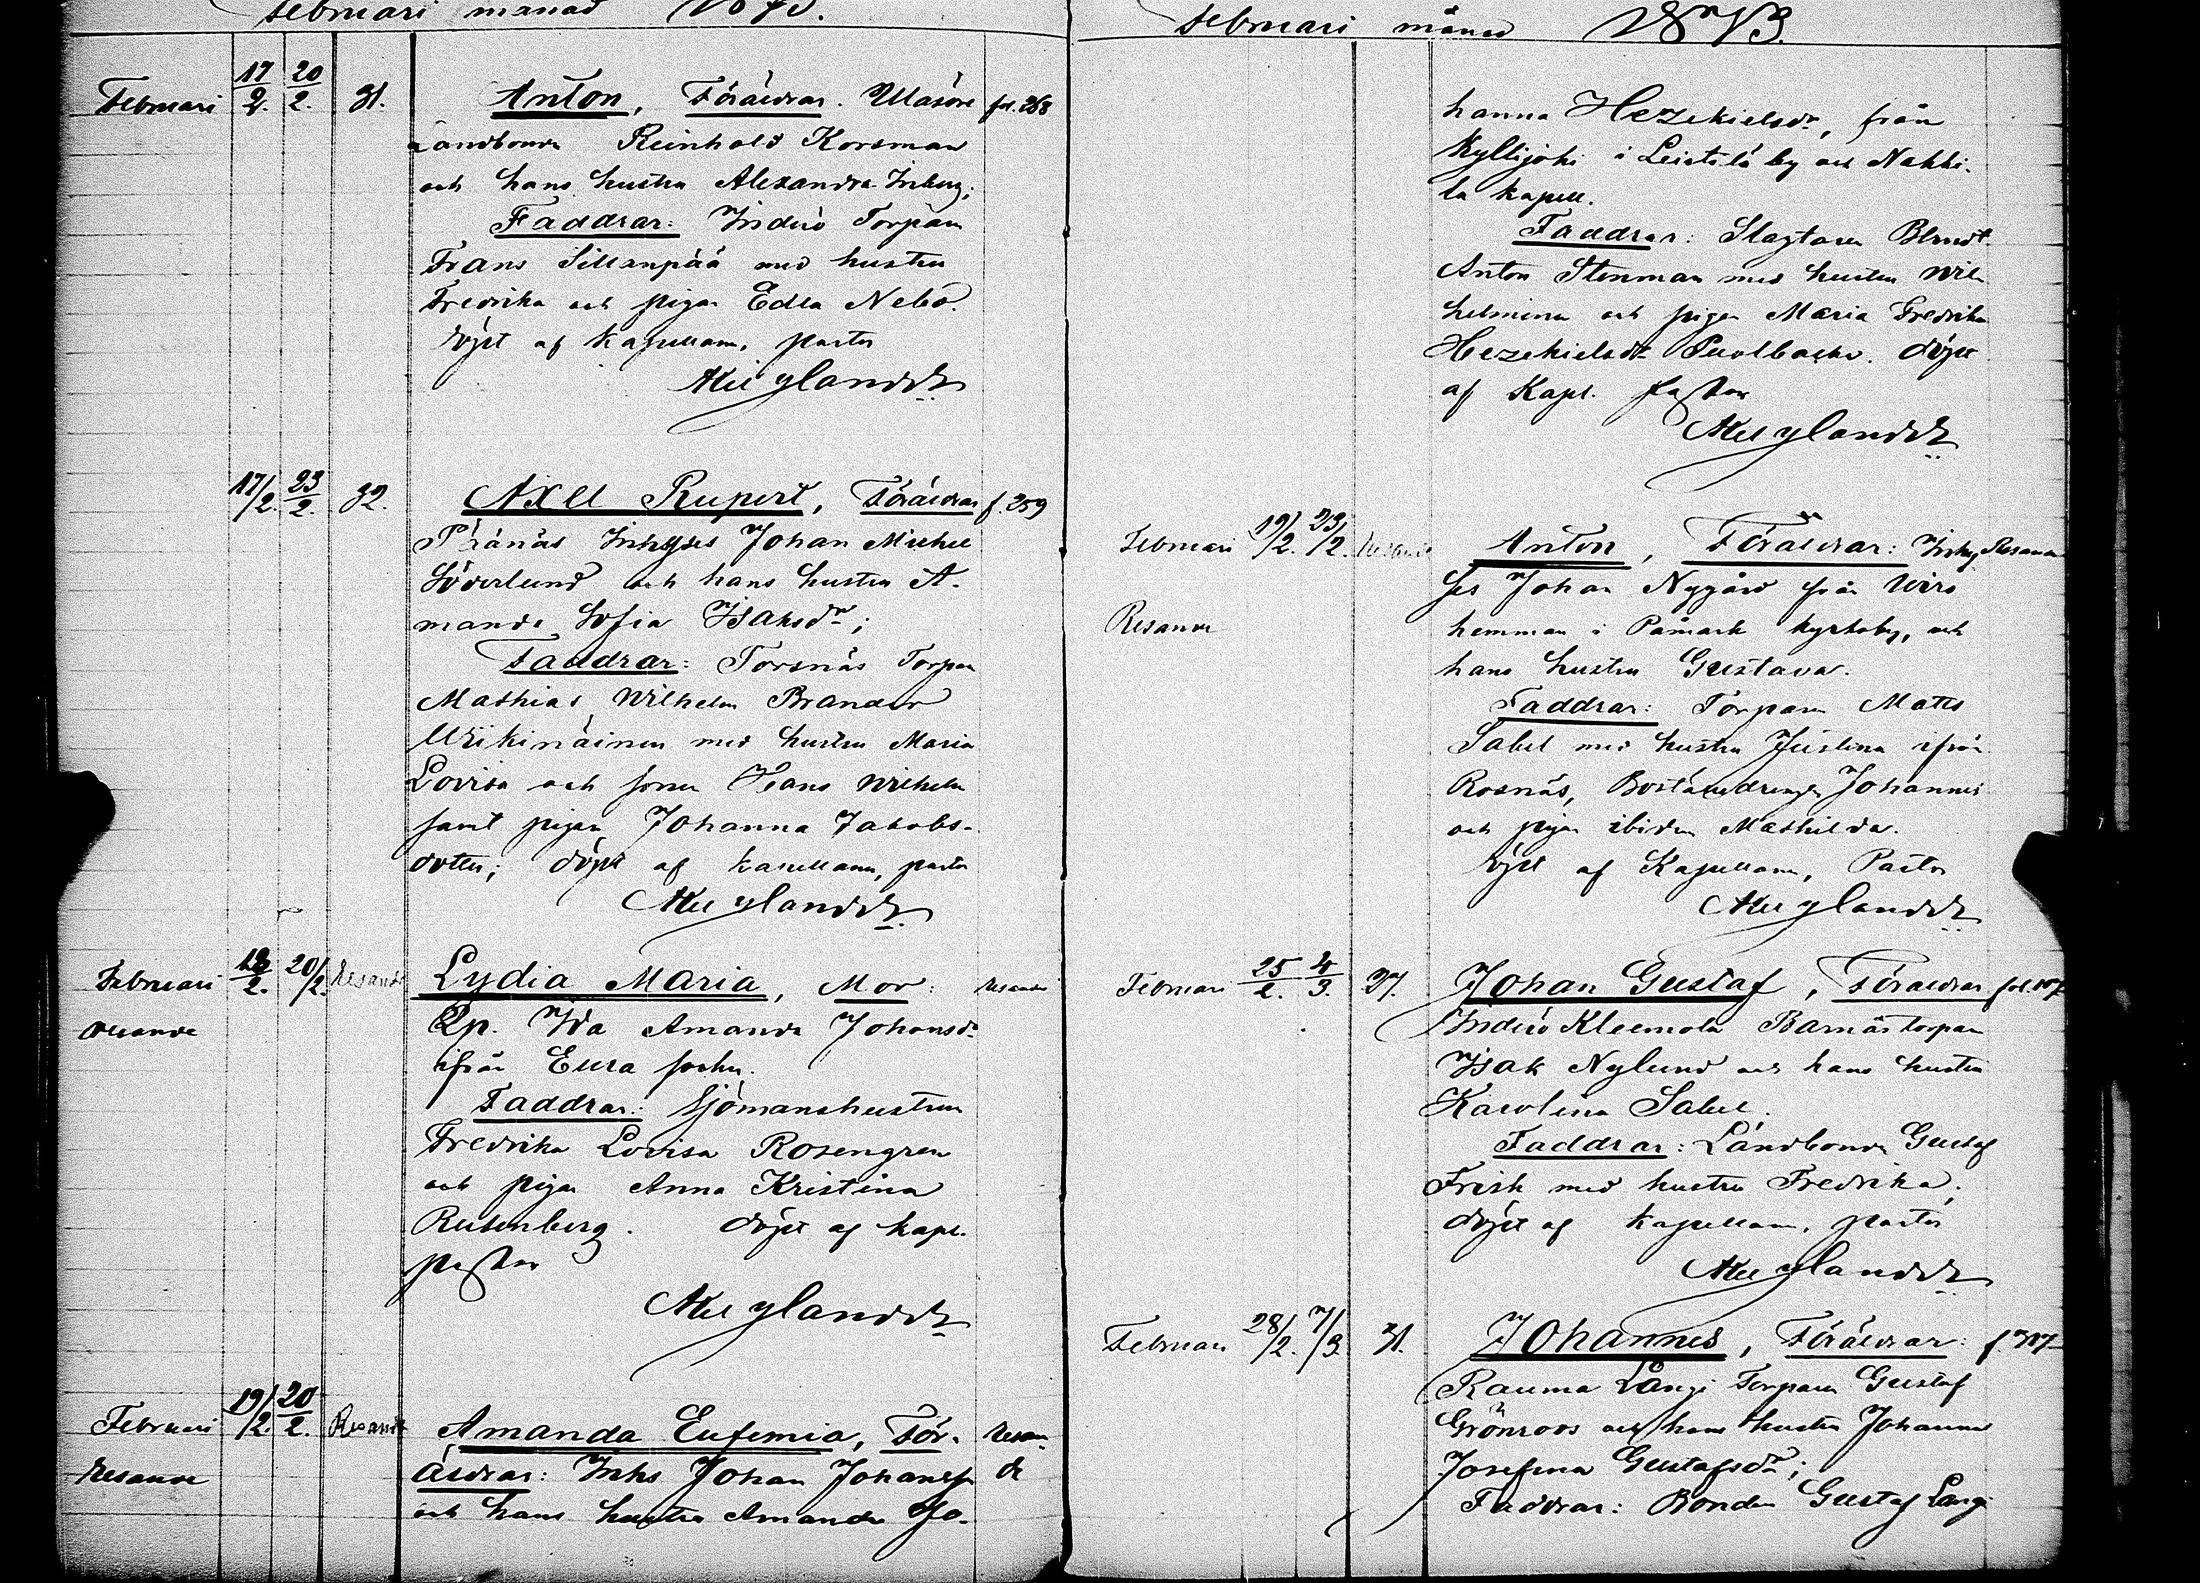 Februari månad 1873.
Februari 17/2. 20/2. 31. Anton, Föräldrar. Ulasöre fol. 268
Landbonden Reinhold Korsman
och hans hustru Alexandra Inberg;
Faddrar: Inderö Torparn
Frans Sillanpää med hustru
Fredrika och pigan Edla Nebo.
döpt af Kapellanen, pastor
Ax Ylander
17/2. 23/2. 32. Axel Rupert, Föräldrar f. 259
Inhyses Johan Mickel
Söderlund och hans hustru A-
manda Sofia Isaksdr;
Faddrar: Torsnäs Torparn
Mathias Wilhelm Brander
Wiikinäinen med hustru Maria
Lovisa och sonen Frans Wilhelm
samt pigan Johanna Jakobs-
dotter; döpt af kapellanen, pastor
Ylander
Februari 18/2. 20/2. Resande Lydia Maria, Mor: Resande
resande Qp. Ida Amanda Johansdr
ifrån Eura socken.
Faddrar: Sjömanshustrun
Fredrika Lovisa Rosengren
och pigan Anna Kristina
Rutenberg. döpt af kapl.
pastor
Ylander
Februari 19/2. 20/2. Resande Amanda Eufemia, För- Resan-
Resande äldrar: Inhs Johan Johansson de
och hans hustru Amanda Jo-
Februari månad 1873.
hanna Hezekielsdr, från
Kyllijoki i Leistilä by och Nakki-
la kapell.
Faddrar: Slagtaren Berndt
Anton Stenman med hustru Wil-
helmina och pigan Maria Fredrika
Hezekielsdr Puolbacka. döpt
af Kapl. Pastor
Ylander
Februari 19/2. 23/2. Resande Anton, Föräldrar: Inhy- Resande
ses Johan Nygård från Wiro
Resande hemman i Påmark kyrkoby, och
hans hustru Gustava.
Faddrar: Torparn Matts
Sabel med hustru Justina ifrån
Rosnäs, Bostälsdrengen Johannes
och pigan ibidem Mathilda.
döpt af Kapellanen, Pastor
Ylander
Februari 25/2. 4/3. 37. Johan Gustaf, Föräldrar fol. 107
Inderö Kleemola Barnäs torparn
Isak Nylund och hans hustru
Karolina Sabel.
Faddrar: Landbonden Gustaf
Frisk med hustru Fredrika;
döpt af kapellanen, pastor
Ylander
Februari 28/2. 7/3. 31. Johannes, Föräldrar: f 317
Rauma Långi Torparn Gustaf
Grönroos och hans hustru Johanna
Josefina Gustafsdr;
Faddrar: Bonden Gustaf Långi